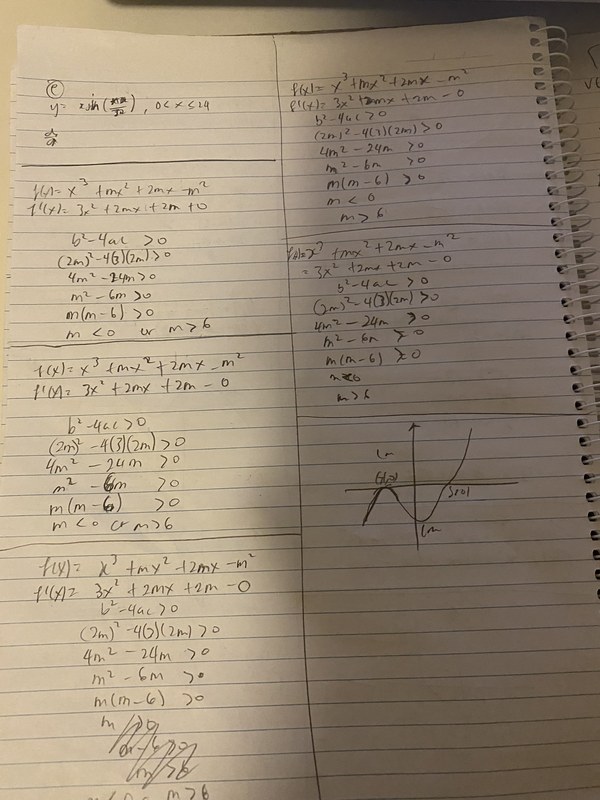 y= sin( ), 0 < x ≤ 24
dy
f(x)= x³ + mx² + 2mx - m²
f'(x)= 3x² + 2mx + 2m + 0
b² - 4ac > 0
(2m)² - 4(3)(2m) > 0
4m² - 24m > 0
m² - 6m > 0
m(m - 6) > 0
m < 0 or m > 6
f(x) = x³ + mx² + 2mx - m²
f'(x)= 3x² + 2mx + 2m - 0
b² - 4ac > 0
(2m)² - 4(3)(2m) > 0
4m² - 24m > 0
m² - 6m > 0
m(m - 6) > 0
m < 0 or m > 6
f(x)= x³ + mx² + 2mx - m²
f'(x)= 3x² + 2mx + 2m - 0
b² - 4ac > 0
(2m)² - 4(3)(2m) > 0
4m² - 24m > 0
m² - 6m > 0
m(m - 6) > 0
m > 0
m - 6 > 0
m > 6
m > 6
f(x)= x³ + mx² + 2mx - m²
f'(x)= 3x² + 2mx + 2m - 0
b² - 4ac > 0
(2m)² - 4(3)(2m) > 0
4m² - 24m > 0
m² - 6m > 0
m(m - 6) > 0
m < 0
m > 6
f(x)= x³ + mx² + 2mx - m²
= 3x² + 2mx + 2m - 0
b² - 4ac > 0
(2m)² - 4(3)(2m) > 0
4m² - 24m > 0
m² - 6m > 0
m(m - 6) > 0
m > 6
Lm
Lm